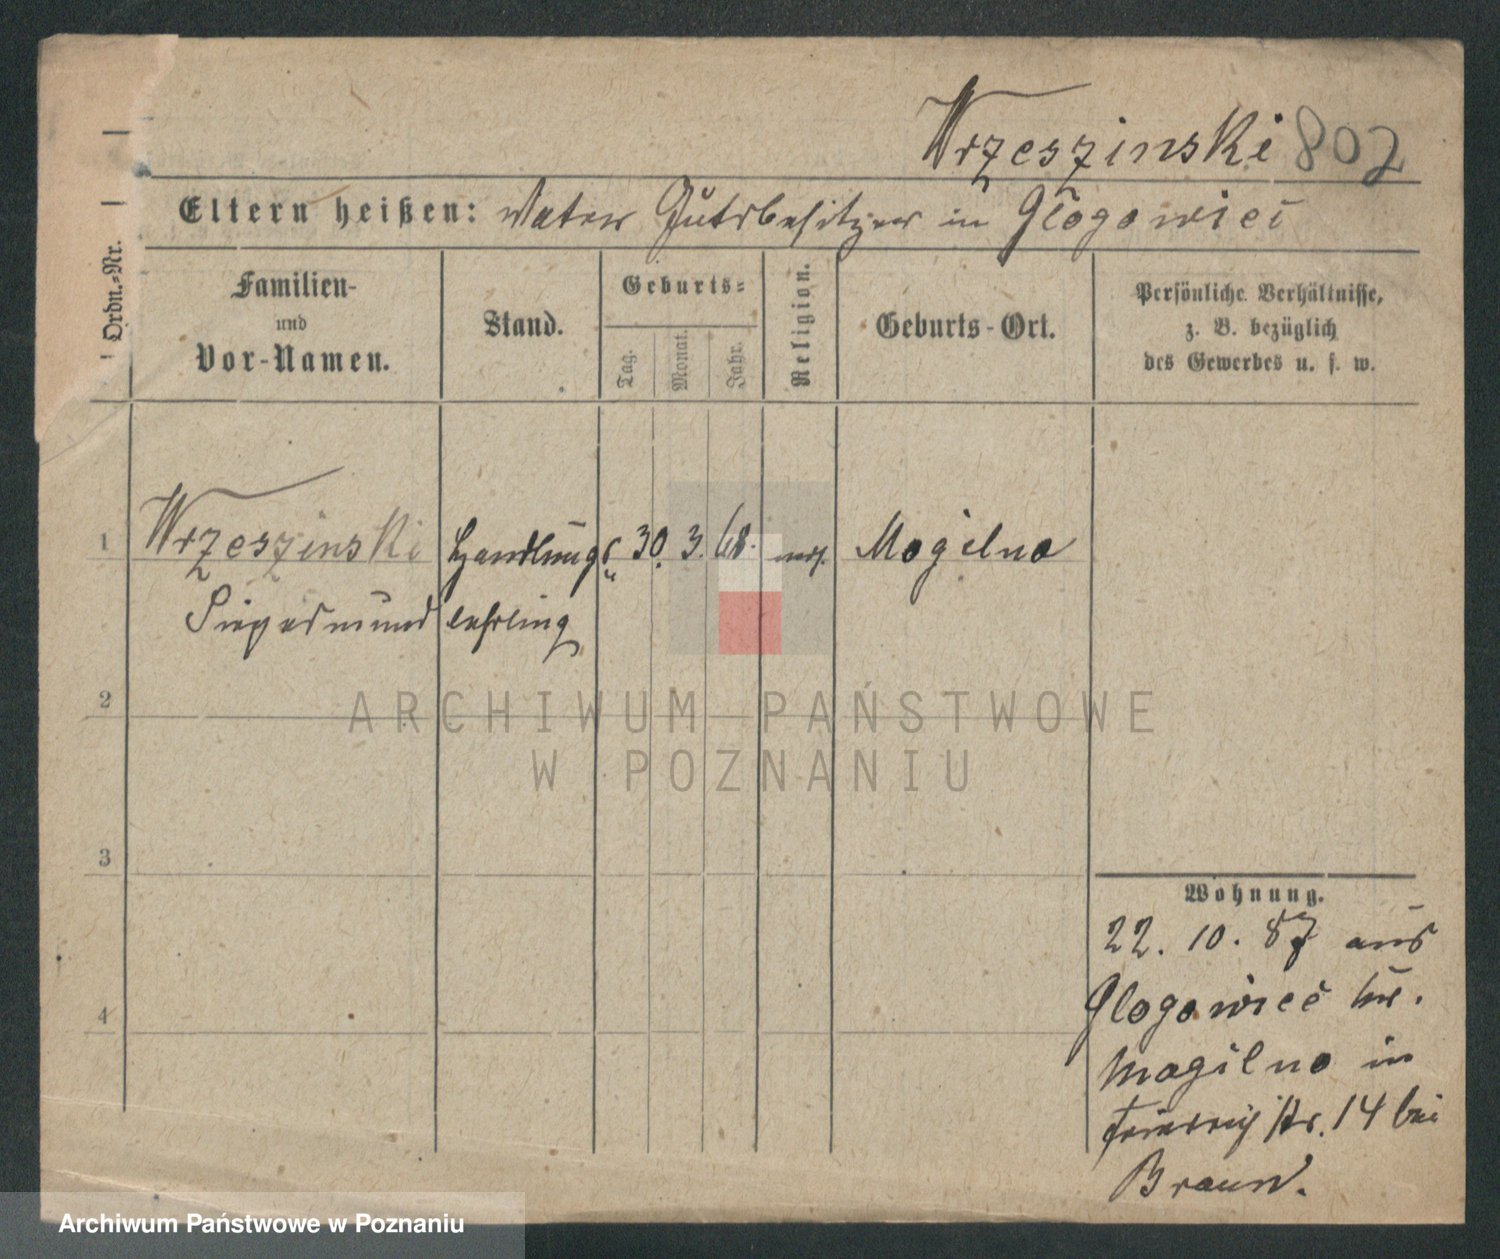 Wrzeszinski 802
Eltern heißen: Vater Gutsbesitzer in Glogowiec
Ordn.-Nr.
Familien-
und
Vor-Namen.
Stand.
Geburts-
Tag.
Monat.
Jahr.
Religion.
Geburts-Ort.
Persönliche Verhältnisse,
z. B. bezüglich
des Gewerbes u. s. w.
1 Wrzeszinski Handlungs 30. 3. 68. mos. Mogilno
Siegesmund lehrling
2
3
4
Wohnung.
22. 10. 87 aus
Glogowiec Kr.
Mogilno in
Friedrichstr. 14 bei
Braun.
ARCHIWUM PAŃSTWOWE
W POZNANIU
Archiwum Państwowe w Poznaniu